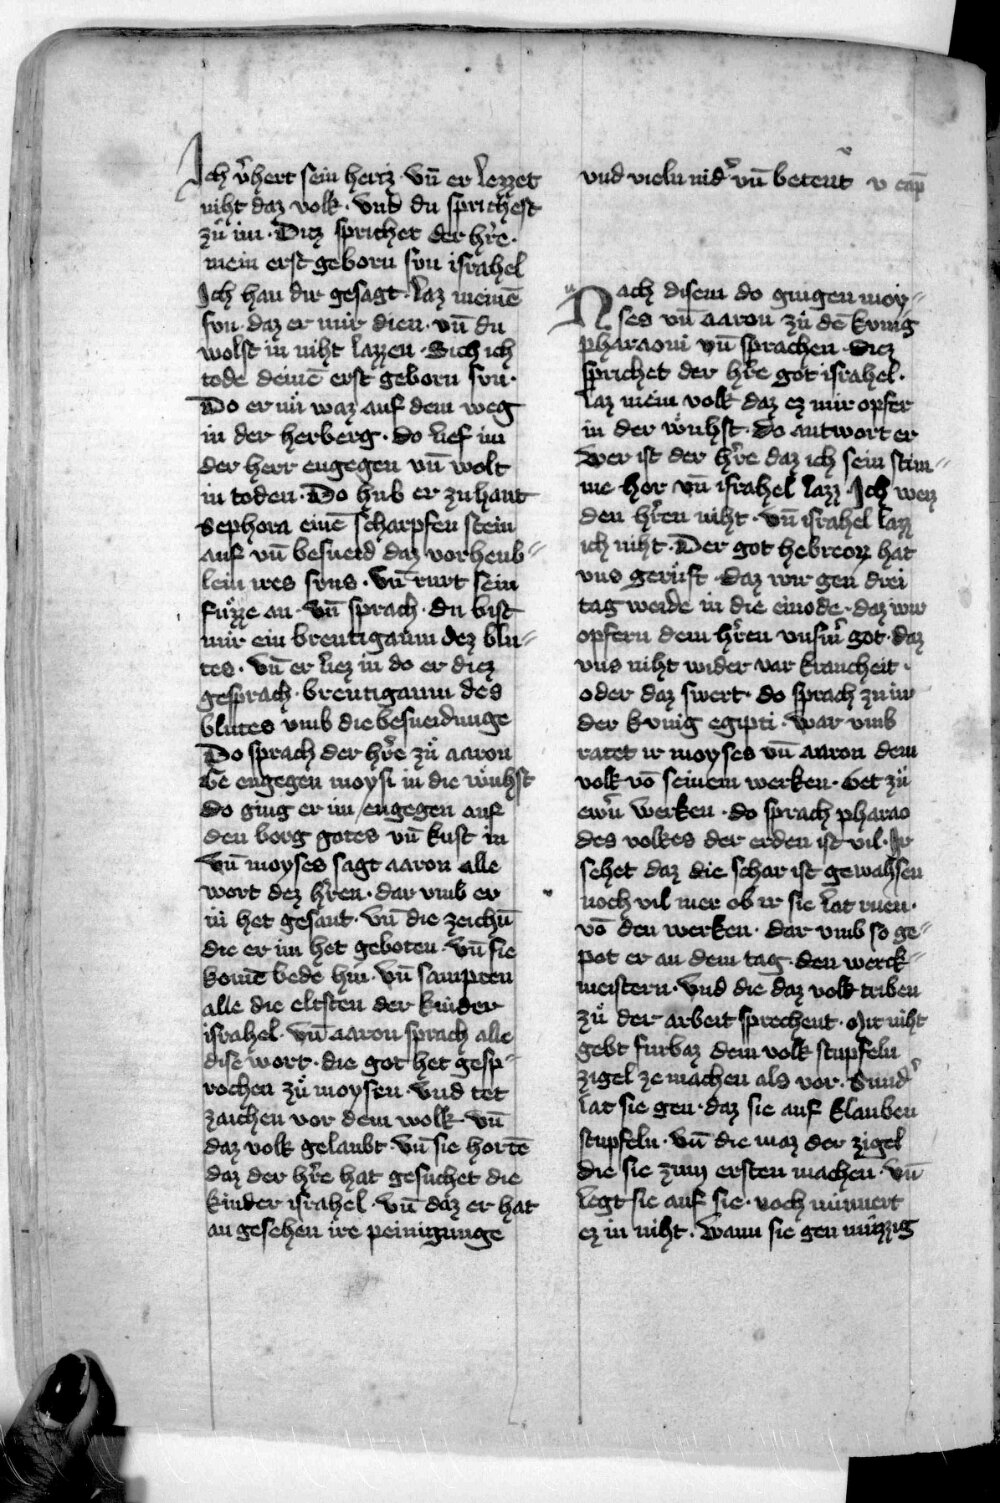 Ich v̓hert sein hertz · vn̄ er lezzet
niht daz volk · vnd du sprichest
zů im · Ditz sprichet der hr̄e ·
mein erst geborn svn israhel
Ich han dir gesagt · laz meinē
svn · daz er mir dien · vn̄ du
wolst in niht lazzen · Sich ich
tode deinē erst geborn svn ·
Do er nů waz auf dem weg
in der herberg · do lief im
der herr engegen vn̄ wolt
in toden · Do hub er zu hant
Sephora einē scharpfen stein
auf vn̄ besneid daz vorheub〃
lein ires svns · Vn̄ rurt sein
fůzze an · vn̄ sprach · du bist
mir ein breutigaum dez blu〃
tes · vn̄ er liez in do er ditz
gesprach · breutigaum des
blutes vmb die besneidunge
Do sprach der hr̄e zů aaron
Ge engegen moysi in die wůhst
do ging er im engegen auf
den berg gotes vn̄ kust in
Vn̄ moyses sagt aaron alle
wort dez hr̄en · dar vmb er
in het gesant · vn̄ die zeichn̄
die er im het geboten · vn̄ sie
komē bede hin · vn̄ sampten
alle die eltsten der kinder
israhel · vn̄ aaron sprach alle
dise wort · die got het gesp〃
rochen zů moysen · Vnd tet
zaichen vor dem wolk · vn̄
daz volk gelaubt · vn̄ sie hortē
daz der hr̄e hat gesuchet die
kinder israhel · vn̄ daz er hat
an gesehen ire peinigunge
vnd vieln nid̓ vn̄ betent v cap̄
Nach disem do gingen moy〃
ses vn̄ aaron zů dē kvnig
pharaoni vn̄ sprachen · ditz
sprichet der hr̄e got israhel ·
laz mein volk daz ez mir opfer
in der wůhst · do antwort er
Wer ist der hr̄e daz ich sein stim〃
me hor vn̄ israhel lazz · Ich weiz
den hr̄en niht · vn̄ israhel lazz
ich niht · Der got hebreorꝝ hat
vns gerůft · daz wir gen drei
tag weide in die einode · daz wir
opfern dem hr̄en vnsm̄ got · daz
vns niht wider var krancheit ·
oder daz swert · do sprach zu in
der kvnig egipti · War vmb
ratet ir moyses vn̄ aaron dem
volk vō seinem werken · Get zů
ewrn̄ werken · do sprach pharao
des volkes der erden ist vil · Ir
sehet daz die schar ist gewahsen
noch vil mer ob ir sie lat ruen ·
vō den werken · dar vmb so ge〃
pot er an dem tag · den werck〃
meistern · Vnd die daz volk triben
zů der arbeit sprechent · Mit niht
gebt furbaz dem volk stupfeln
zigel ze machen als vor · Sund̓
lat sie gen · daz sie auf klauben
stupfeln · vn̄ die maz der zigel
die sie zum ersten machen · vn̄
legt sie auf sie · noch minnert
ez in niht · Wann sie gen můzzig